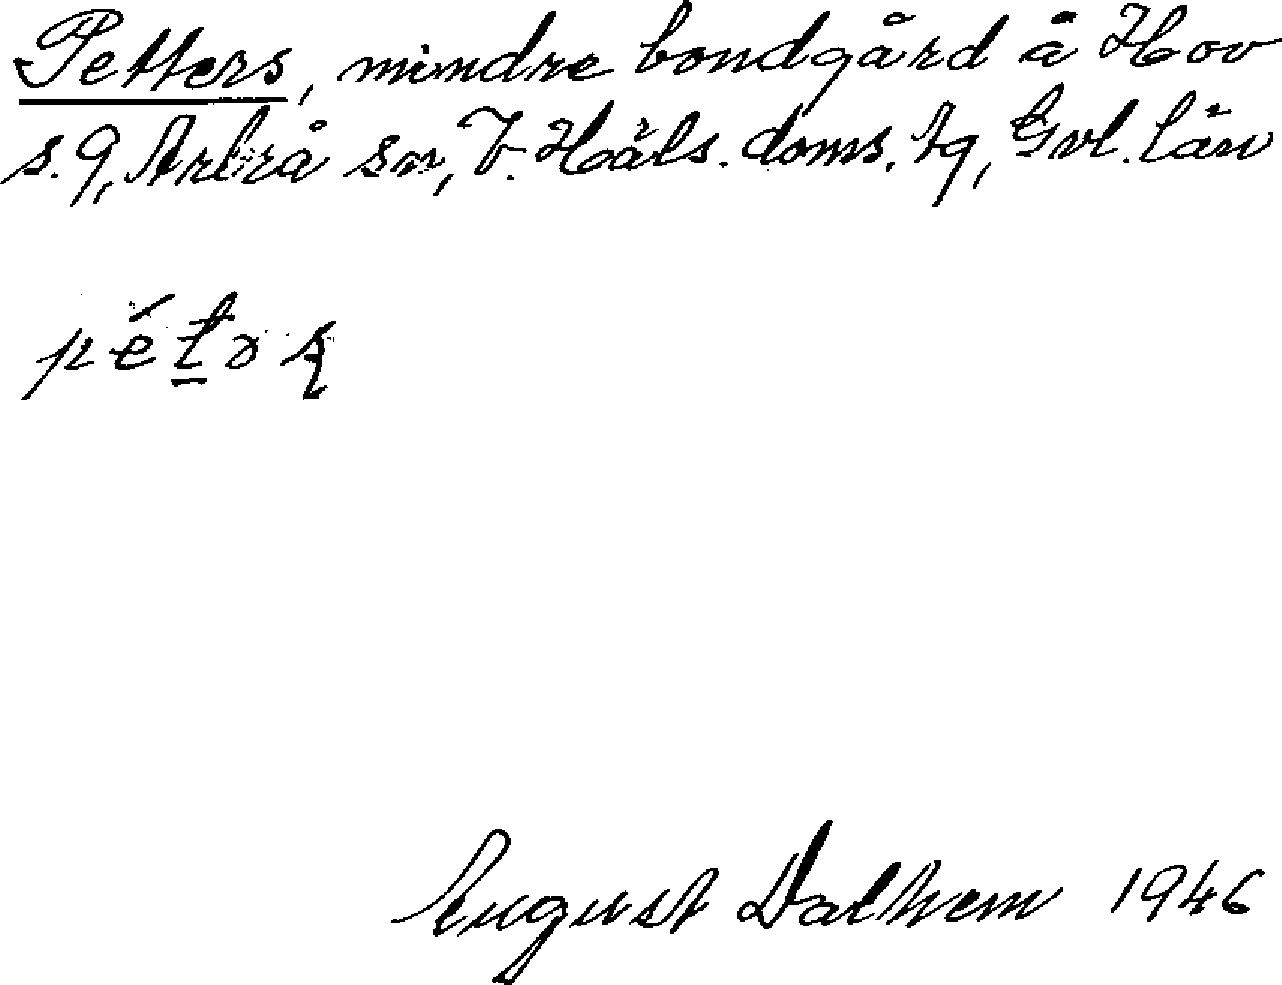 Petters, mindre bondgård å Hov
s. 9, Arbrå sn, V. Häls. doms. tg, Gvl. län
pétəʂ
August Dalhem 1946